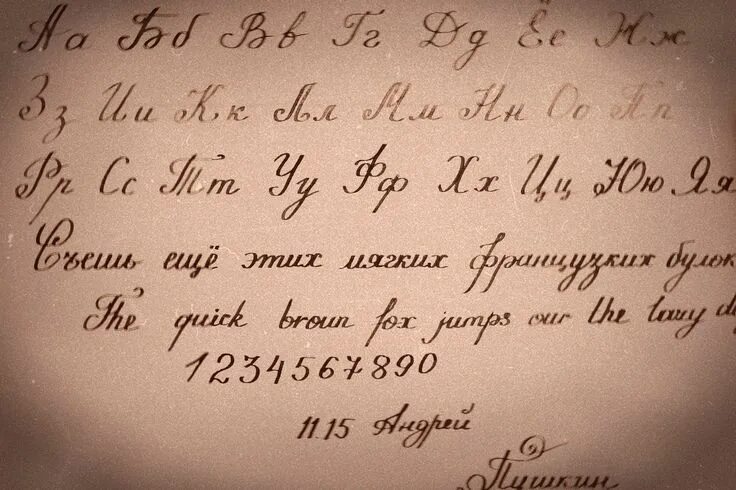 Аа Бб Вв Гг Дд Ёе Жж
Зз Ии Кк Лл Мм Нн Оо Пп
Рр Сс Тт Уу Фф Хх Цц Юю Яя
Съешь ещё этих мягких французких булок
The quick broun fox jumps our the lazy
1234567890
11.15 Андрей
Пушкин